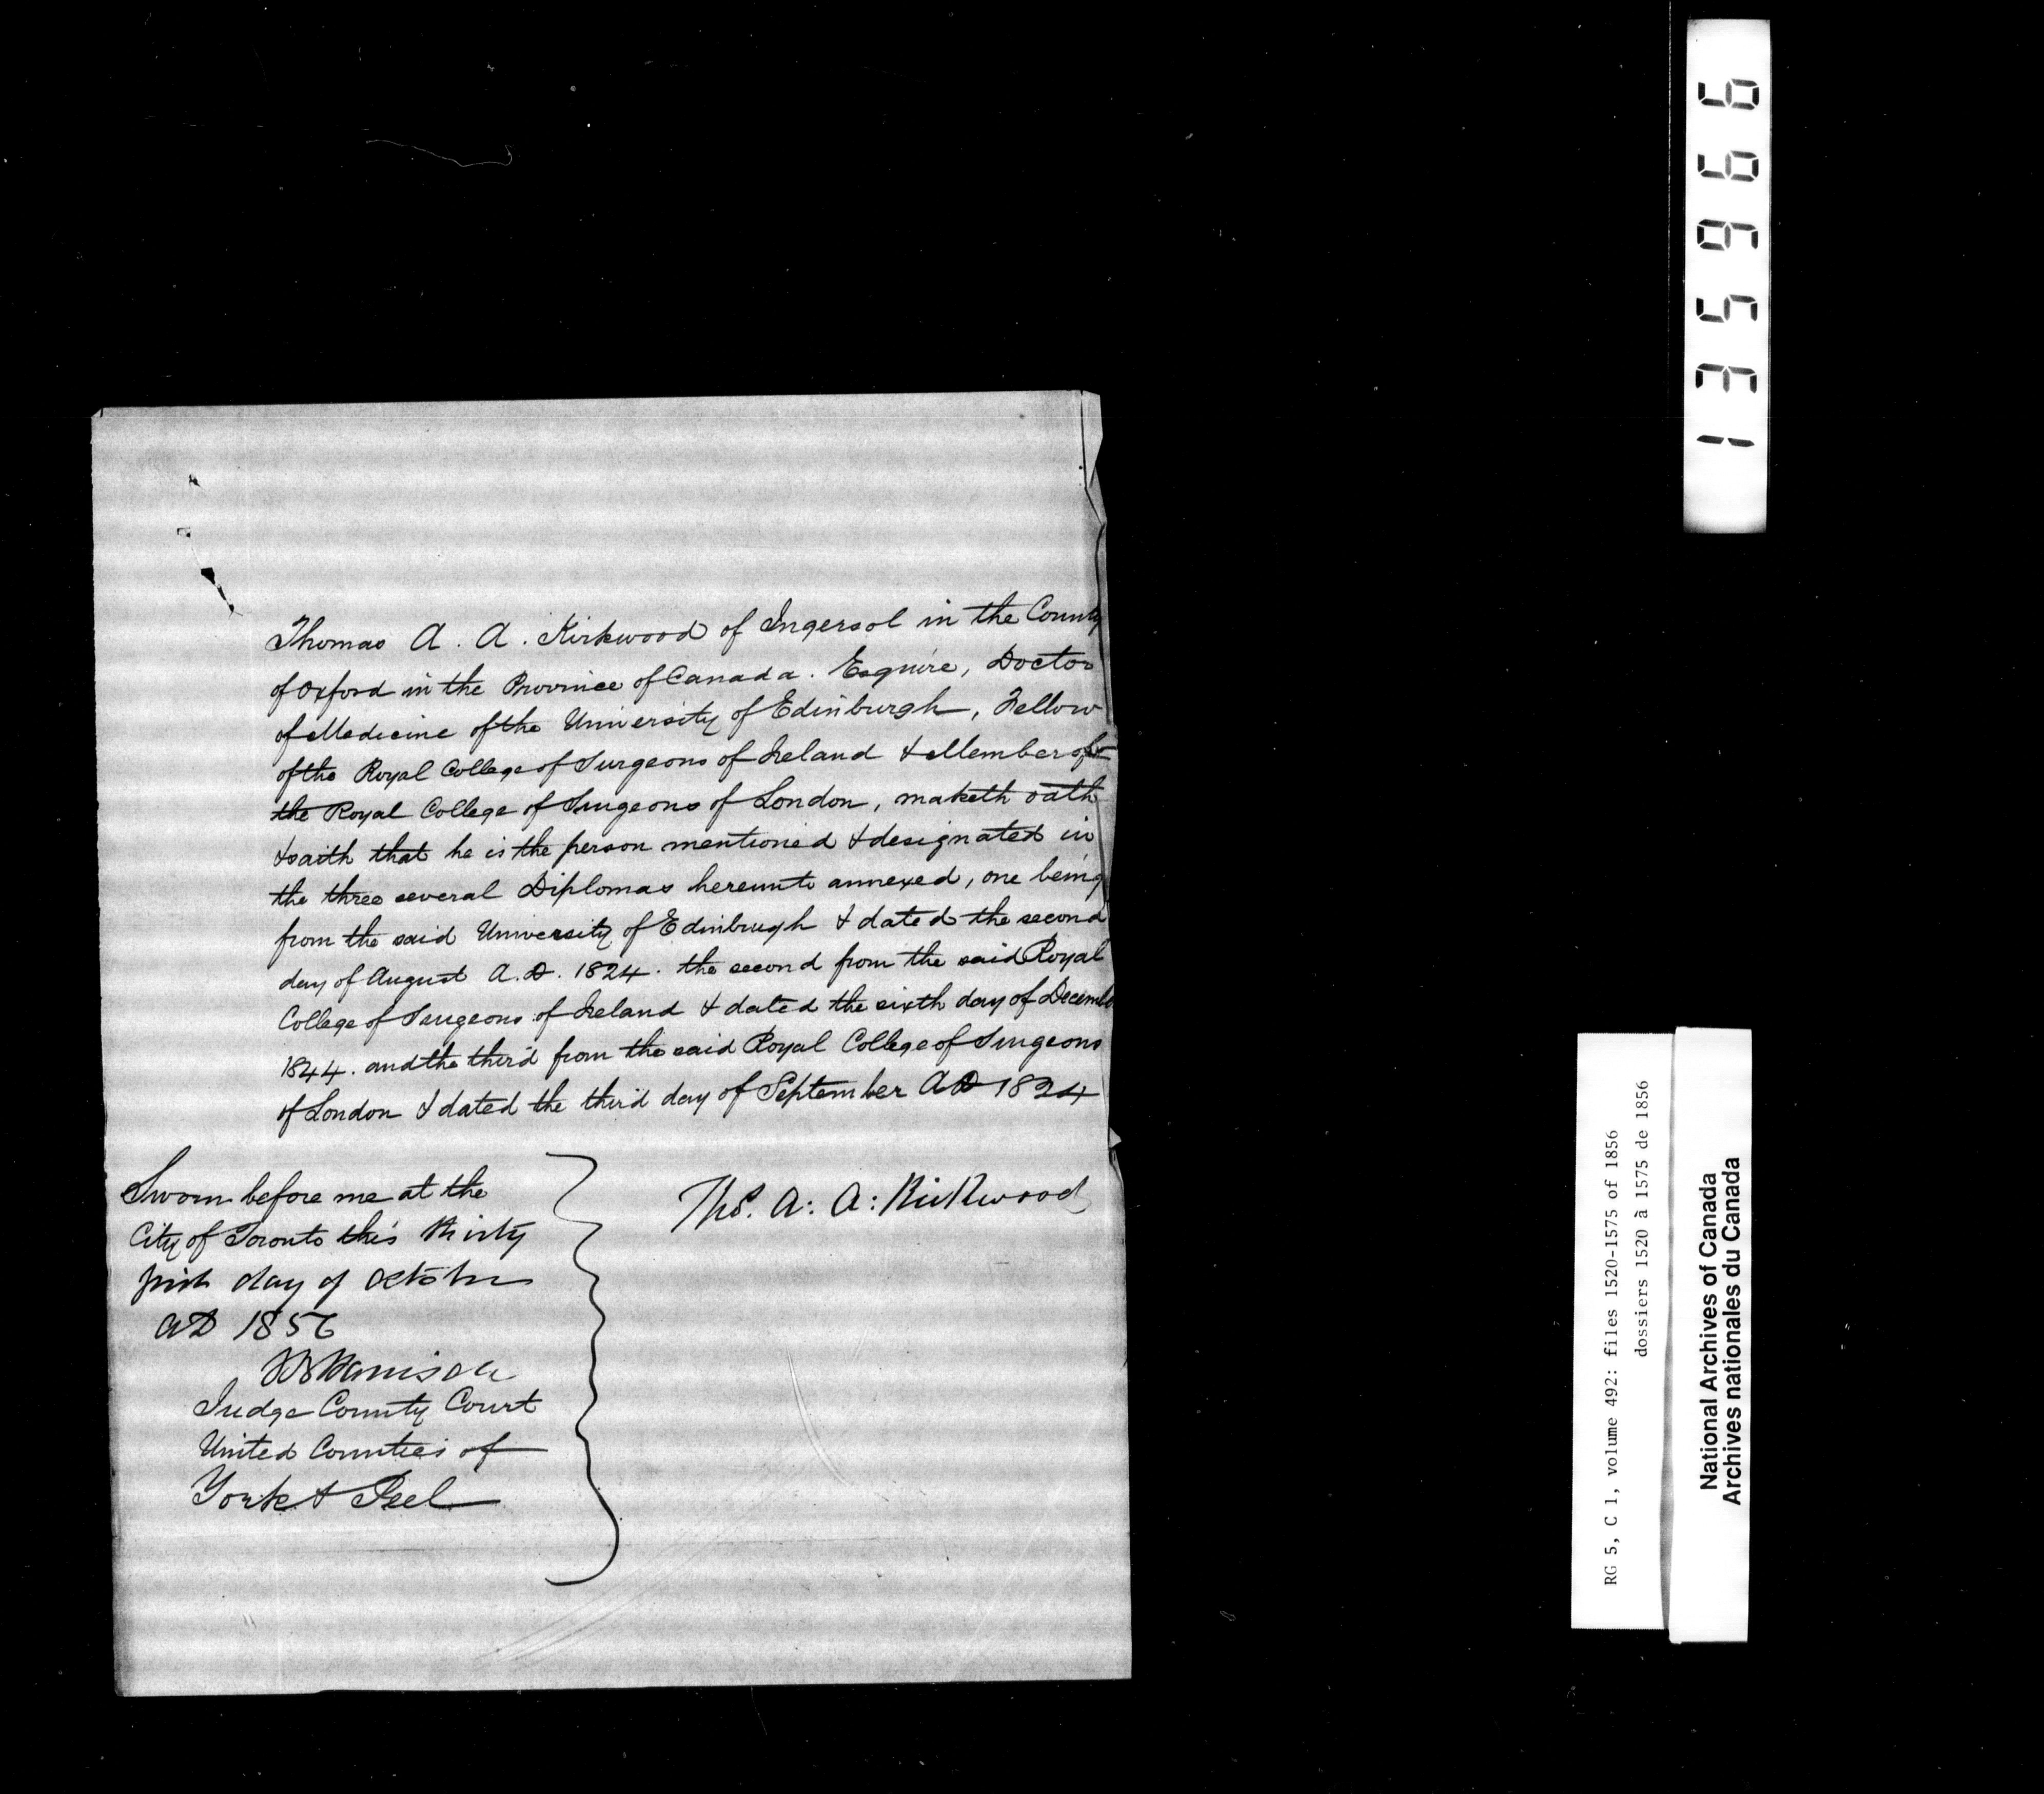 Thomas A. A. Kirkwood of Ingersol in the County
of Oxford in the Province of Canada. Esquire, Doctor
of Medicine of the University of Edinburgh, Fellow
of the Royal College of Surgeons of Ireland & Member of
the Royal College of Surgeons of London, maketh oath
& saith that he is the person mentioned & designated in
the three several Diplomas hereunto annexed, one being
from the said University of Edinbrugh & dated the second
day of August A.D. 1824. the second from the said Royal
College of Surgeons of Ireland & dated the sixth day of Decembe
1844. and the third from the said Royal College of Surgeons
of London & dated the third day of September AD 1824
Sworn before me at the
City of Toronto this thirty
first day of October
AD 1856
Harrison
Judge County Court
United Counties of
York & Peel
Thos. A: A: Kirkwood
135966
RG 5, C 1, volume 492: files 1520-1575 of 1856
dossiers 1520 à 1575 de 1856
National Archives of Canada
Archives nationales du Canada